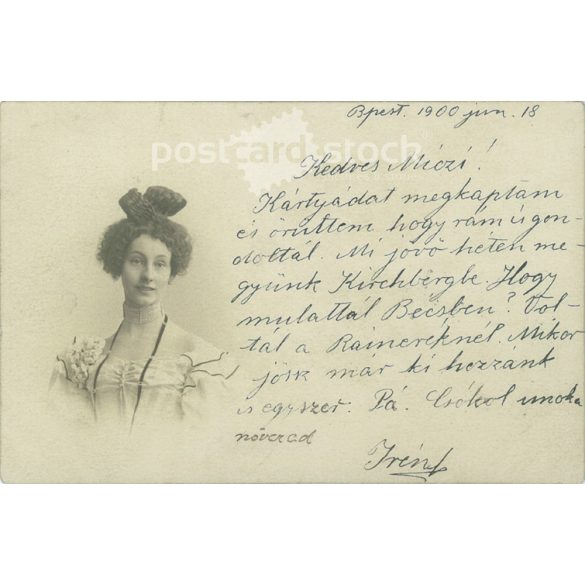 Bpest. 1900 jun. 18.
postcard stock
Kedves Miczi!
Kártyádat megkaptam
és örültem hogy rám is gon-
doltál. Mi jövő héten me-
gyünk Kirchbergbe. Hogy
mulattál Bécsben? Vol-
tal a Raineréknél. Mikor
jösz már ki hozzánk
is egyszer. Pá. Csókol unoka
nővered
Irén